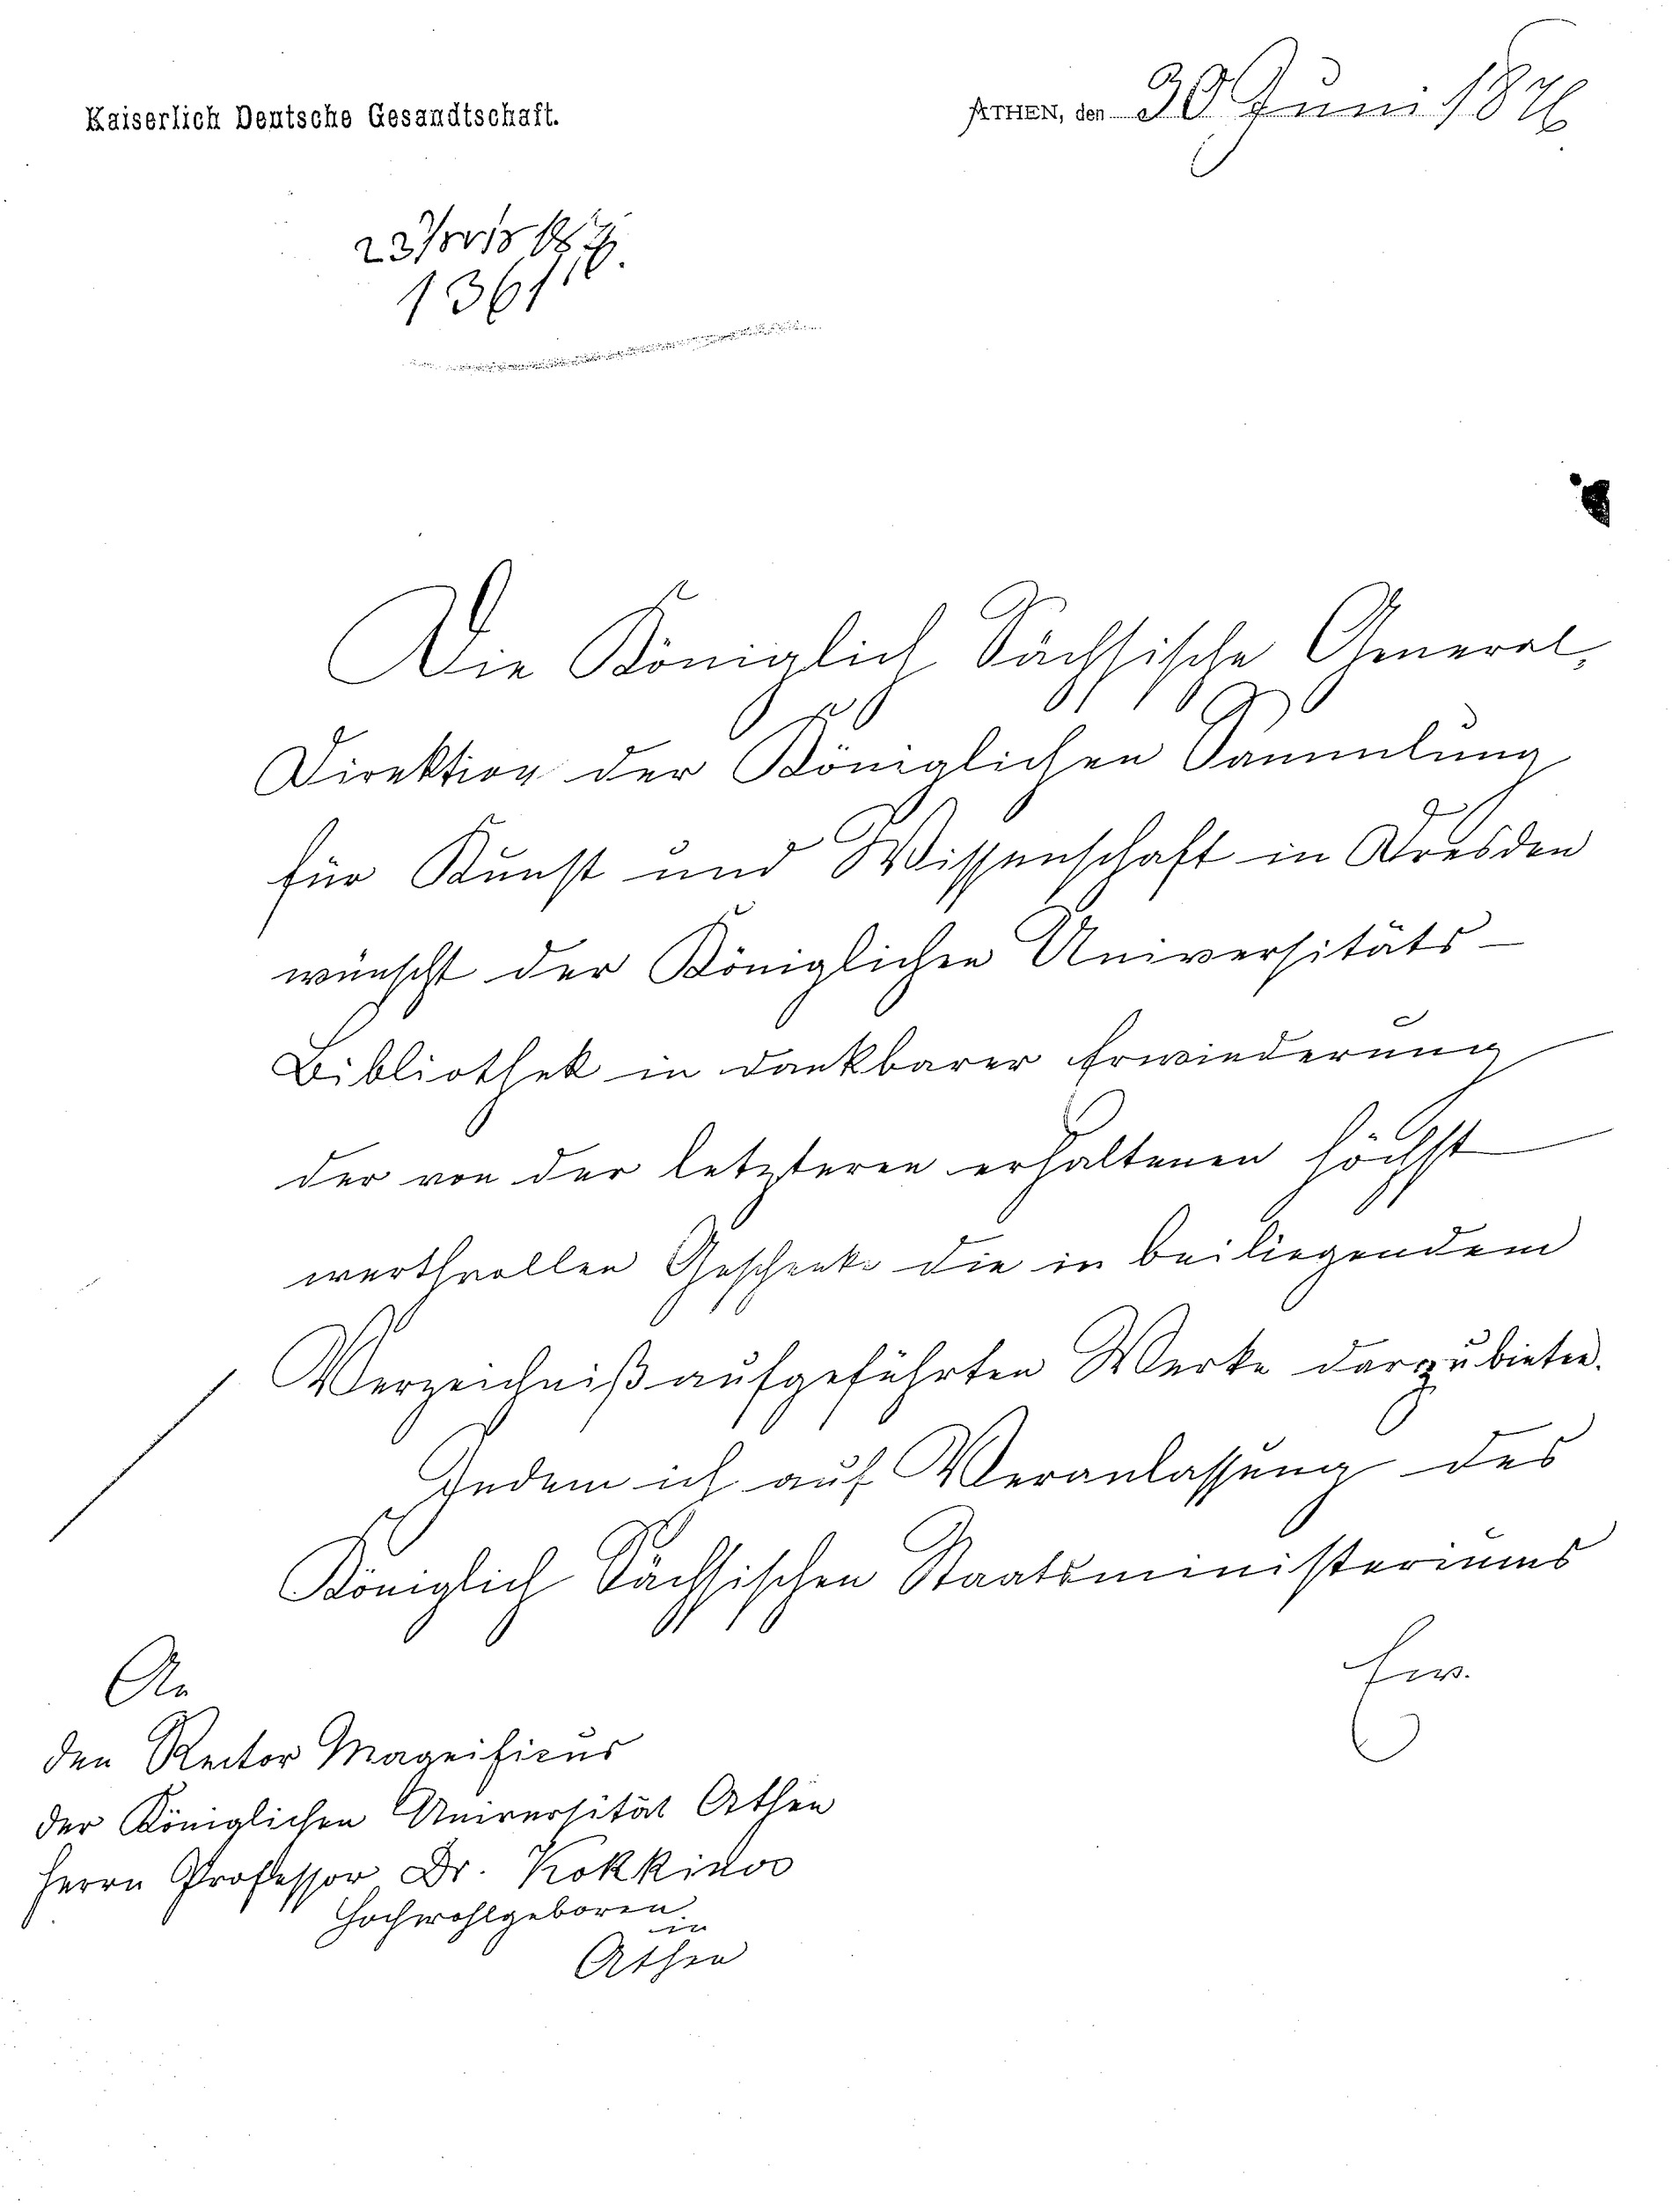 Kaiserlich Deutsche Gesandtschaft.
ATHEN, den 30 Juni 1876
1361
Die Königlich Sächsische General-
Direktion der Königlichen Sammlung
für Kunst und Wissenschaft in Dresden
wünscht der Königlichen Universitäts-
Bibliothek in dankbarer Erwiederung
der von der letzteren erhaltenen höchst
werthvollen Geschenke die in beiliegendem
Verzeichniß aufgeführten Werke darzubieten.
Indem ich auf Veranlassung des
Königlich Sächsischen Staatsministeriums
Ew.
An
den Rector Magnificus
der Königlichen Universität Athen
Herrn Professor Dr. Kokkinos
Hochwohlgeboren
in
Athen